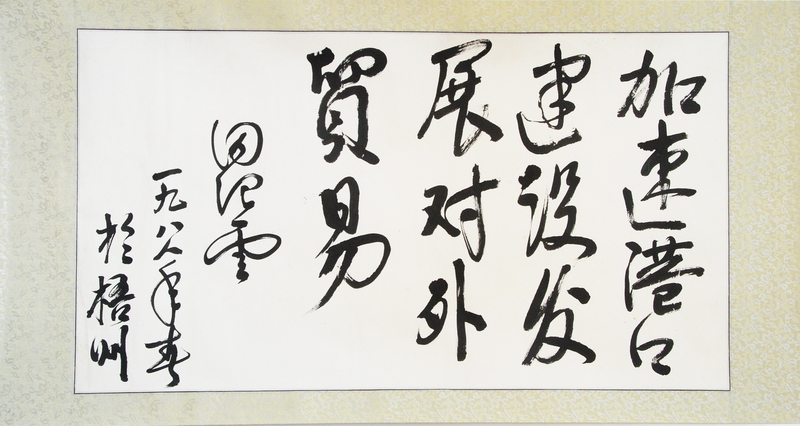 加速港口
建设发
展对外
貿易
田纪雲
一九八八年春
於梧州